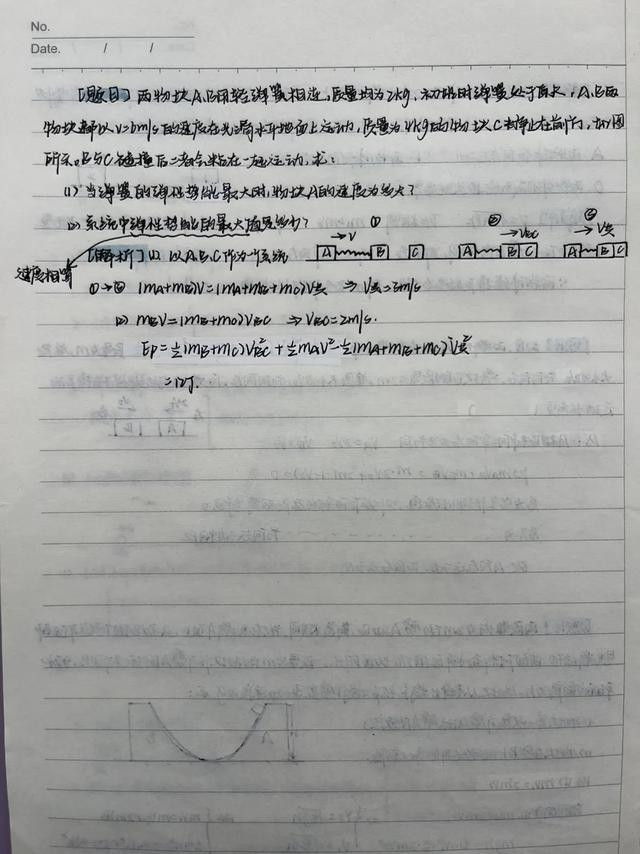 No.
Date. / /
[题目] 两物块A、B用轻弹簧相连,质量均为2kg,初始时弹簧处于原长,A、B两
物块都以v=6m/s的速度在光滑水平地面上运动,质量为4kg的物块C静止在前方,如图
所示。B与C碰撞后二者会粘在一起运动,求:
(1) 当弹簧的弹性势能最大时,物块A的速度为多大?
(2) 系统中弹性势能的最大值是多少?
速度相等
① →V A B C
② →VBC A B C
③ →V共 A B C
[解析] (1) 以A、B、C作为一个系统
①→③ (mA+mB)V=(mA+mB+mC)V共 ⇒ V共=3m/s
(2) mBV=(mB+mC)VBC ⇒ VBC=2m/s.
EP=½(mB+mC)VBC²+½mAV²-½(mA+mB+mC)V共²
=12J.